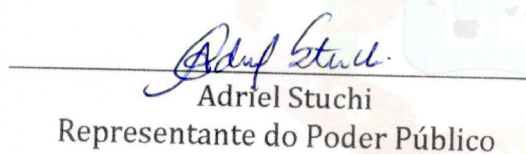 Adriel Stuchi
Adriel Stuchi
Representante do Poder Público